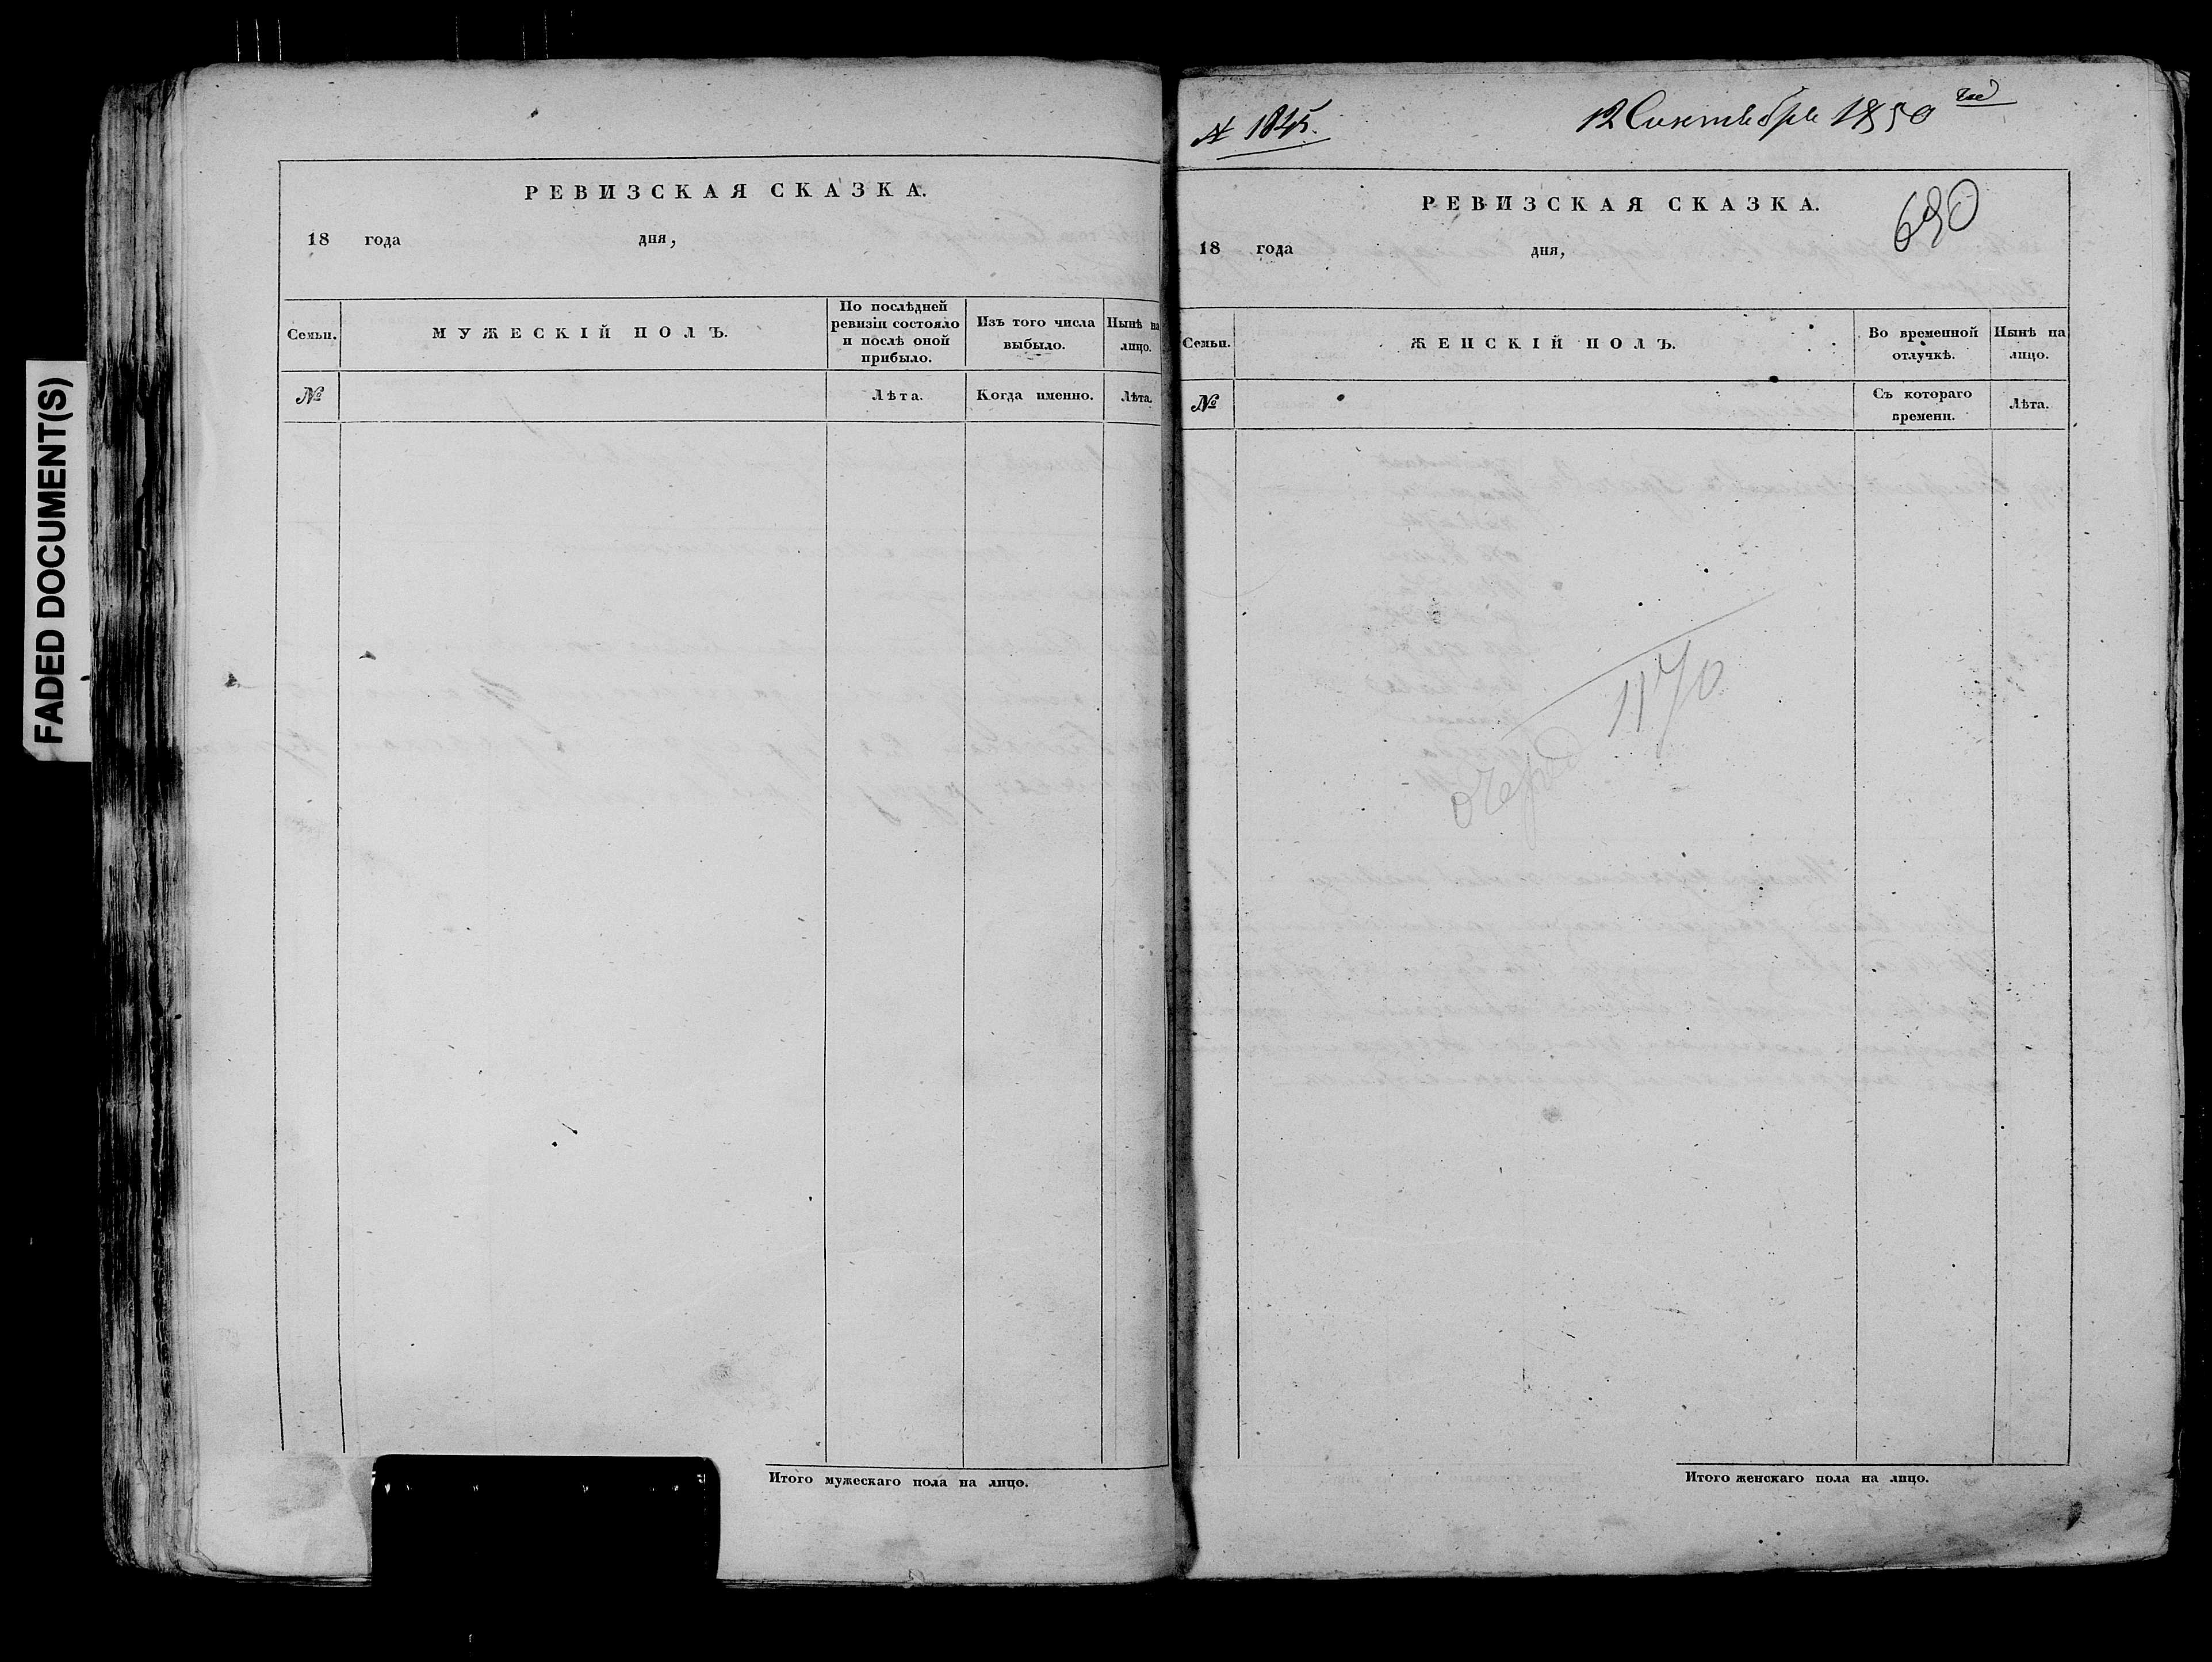 FADED DOCUMENT(S)
РЕВИЗСКАЯ СКАЗКА.
18 года дня,
Семьи.
МУЖЕСКІЙ ПОЛЪ.
По послѣдней
ревизіи состояло
и послѣ оной
прибыло.
Изъ того числа
выбыло.
Нынѣ на
лицо.
№
Лѣта.
Когда именно.
Лѣта.
Итого мужескаго пола на лицо.
№ 1845.
12 Сентября 1850 год
РЕВИЗСКАЯ СКАЗКА.
690
18 года дня,
Семьи.
ЖЕНСКІЙ ПОЛЪ.
Во временной
отлучкѣ.
Нынѣ на
лицо.
№
Съ котораго
времени.
Лѣта.
1170
Итого женскаго пола на лицо.